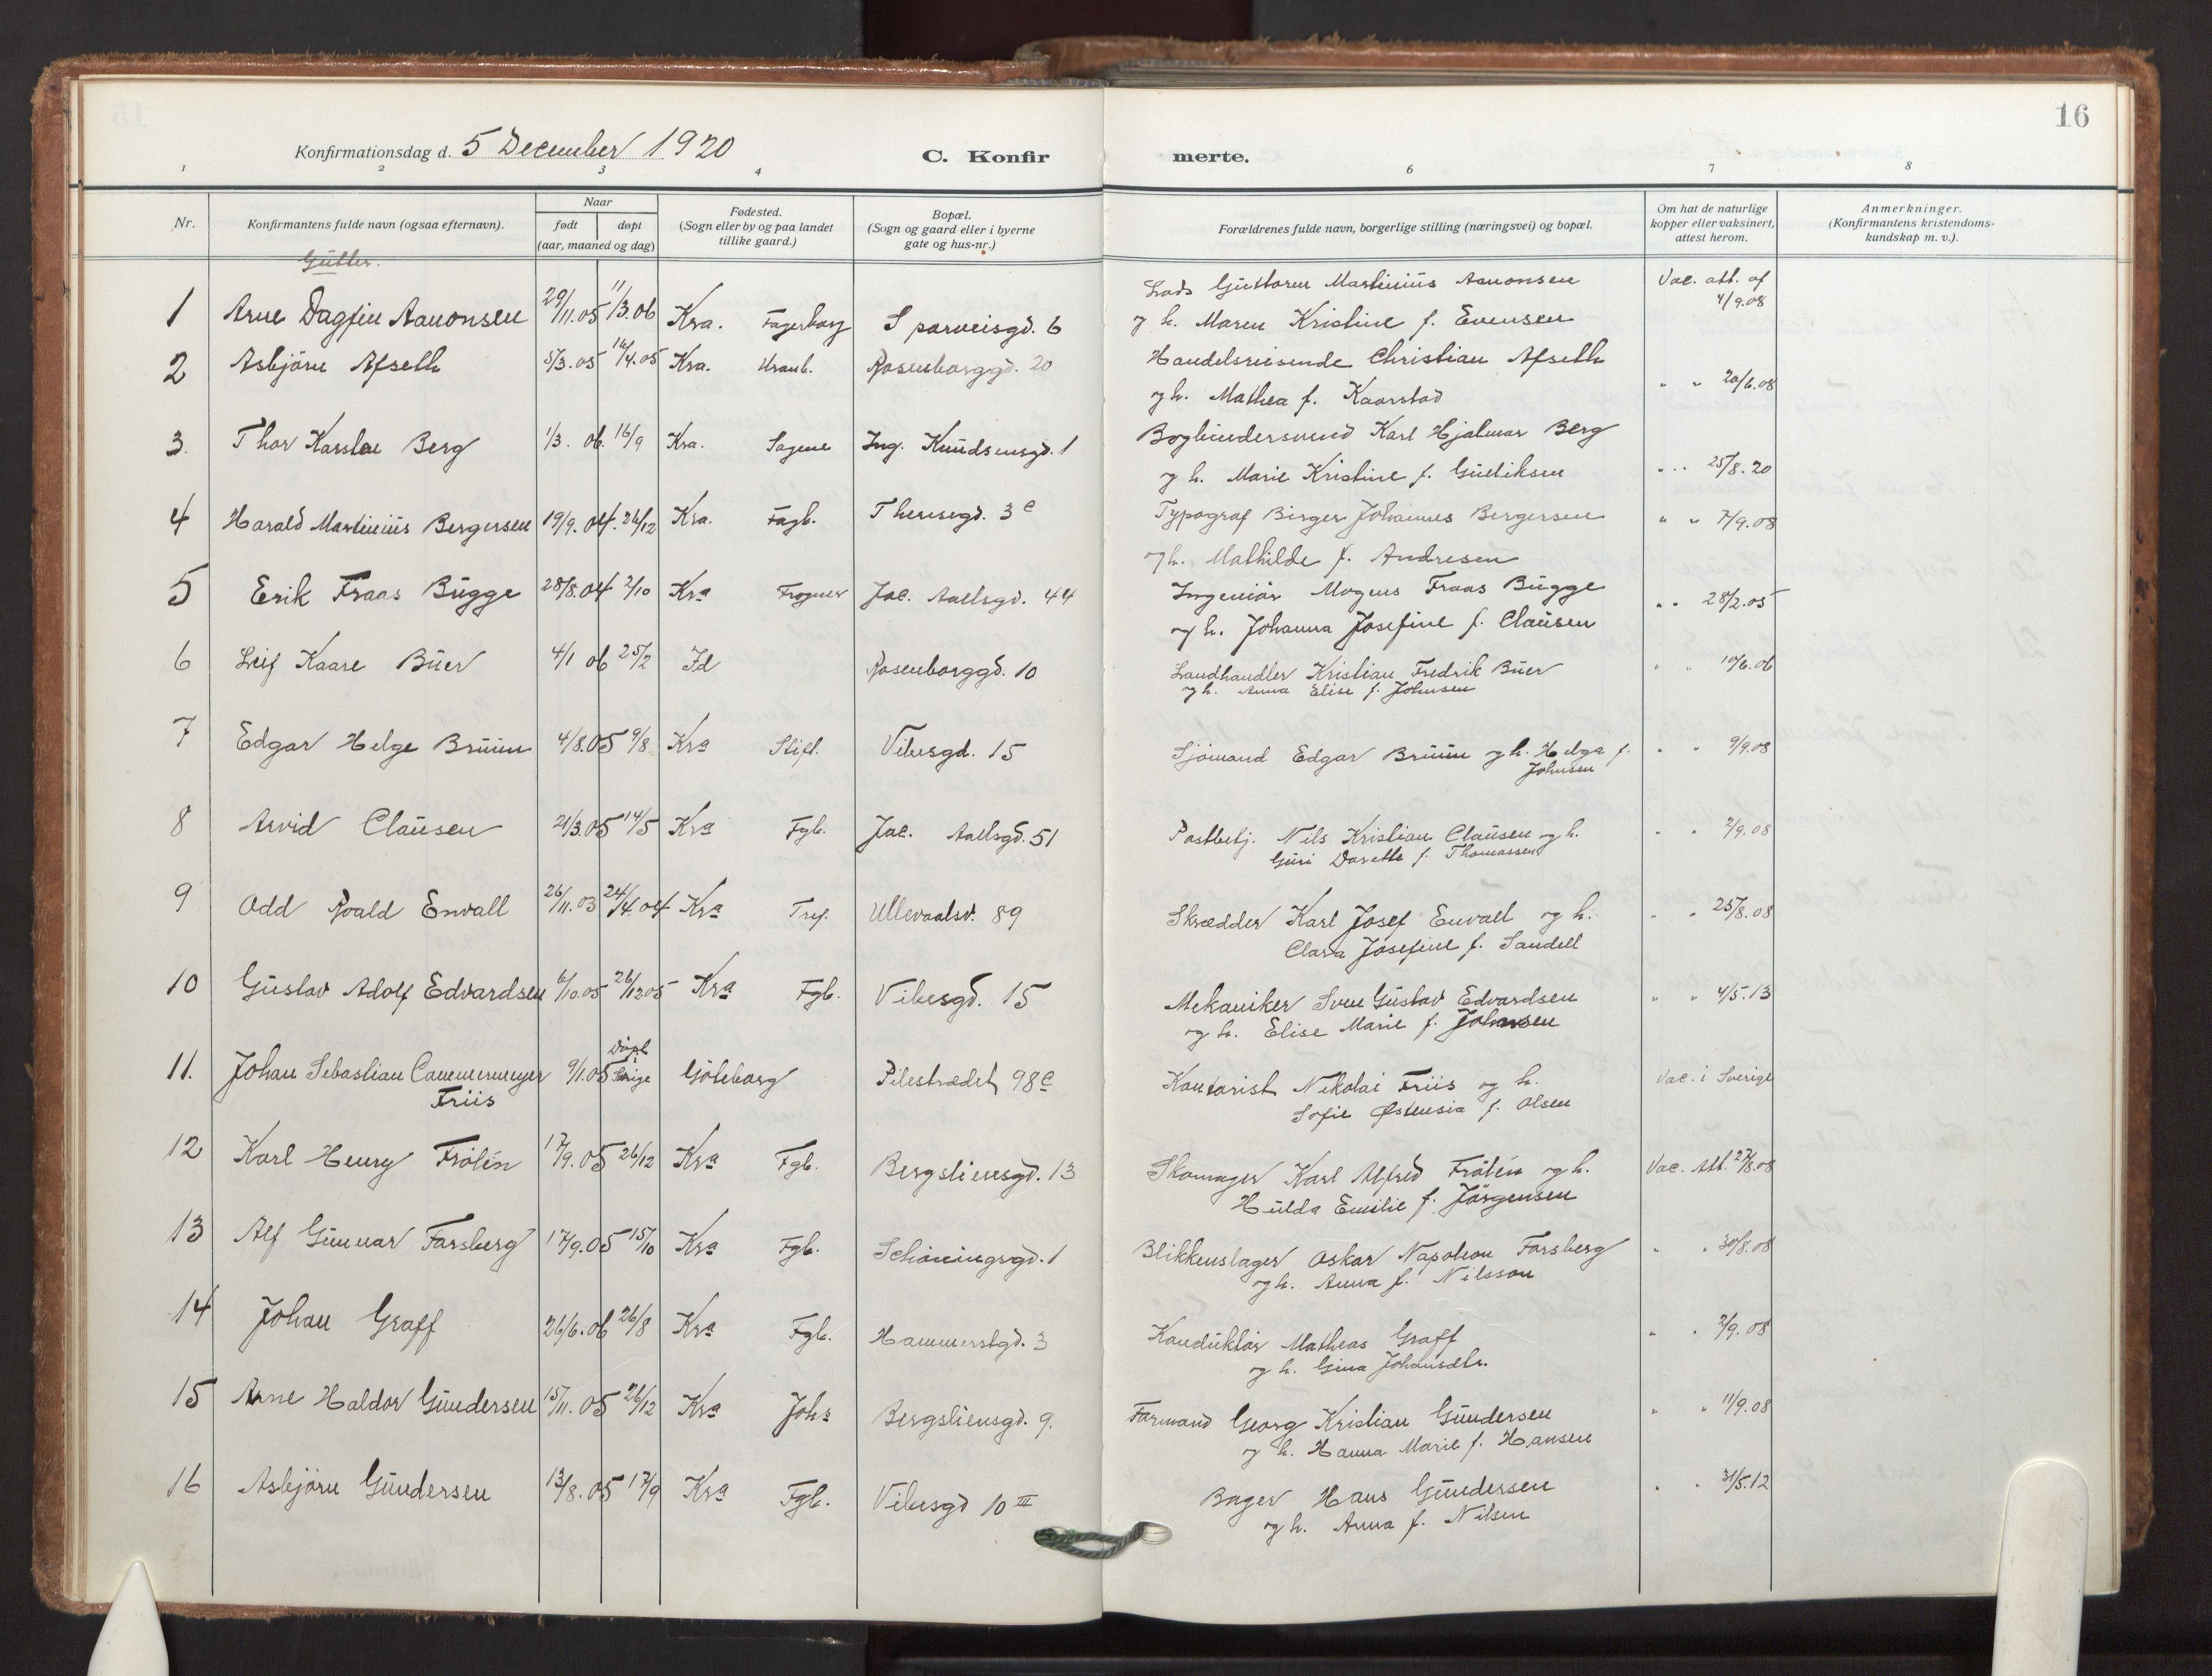 16
Konfirmationsdag d. 5 December 1920
C. Konfir
merte.
1 2 3 4 6 7 8
Nr.
Konfirmantens fulde navn (ogsaa efternavn).
Naar
født døpt
(aar, maaned og dag)
Fødested.
(Sogn eller by og paa landet
tillike gaard.)
Bopæl.
(Sogn og gaard eller i byerne
gate og hus-nr.)
Forældrenes fulde navn, borgerlige stilling (næringsvei) og bopæl.
Om hat de naturlige
kopper eller vaksinert,
attest herom.
Anmerkninger.
(Konfirmantens kristendoms-
kundskap m. v.).
Gutter.
1 Arne Dagfin Aamonsen 29/11.05 11/3.06 Kra. Fagerborg Sporveisgd. 6
Lods Guttorm Martinius Aamonsen Vac. att. af
og h. Maren Kristine f. Evensen 4/9.08
2 Asbjörn Afseth 5/3.05 16/4.05 Kra. Uranb. Rosenborggd. 20
Handelsreisende Christian Afseth
og h. Mathea f. Kaarstad " " 20/6.08
3. Thor Karsten Berg 1/3. 06. 16/9 Kra. Sagene Ing. Knudsensgd. 1
Bogbindersvend Karl Hjalmar Berg
og h. Marie Kristine f. Gulliksen " " 25/8.20
4 Harald Martinius Bergersen 19/9.04. 26/12 Kra. Fagb. Theresegd. 3c
Typograf Birger Johannes Bergersen " " 7/9.08
og h. Mathilde f. Andresen
5 Erik Fraas Bugge 28/8.04 2/10 Kra Frogner Jac. Aallsgd. 44
Ingeniör Mogens Fraas Bugge
og h. Johanna Josefine f. Clausen " " 28/2.05
6 Leif Kaare Buer 4/1 06 25/2 Id Rosenborggd. 10
Landhandler Kristian Fredrik Buer " " 10/6.06
og h. Anna Elise f. Johnsen
7 Edgar Helge Bruun 4/8.05 9/8 Kra Stift. Vibesgd. 15
Sjömand Edgar Bruun og h. Helga f. " " 9/9.08
Johnsen
8 Arvid Clausen 21/3.05 14/5 Kra Fgb. Jac. Aallsgd. 51
Postbetj. Nils Kristian Clausen og h. " " 2/9.08
Guri Dorette f. Thomassen
9 Odd Roald Envall 26/11.03 24/4.04 Kra Tref. Ullevaalsv. 89
Skrædder Karl Josef Envall og h. " " 25/8.08
Clara Josefine f. Sandell
10 Gustav Adolf Edvardsen 6/10.05 26/12 05 Kra Fgb. Vibesgd. 15
Mekaniker Sven Gustav Edvardsen " " 4/5.13
og h. Elise Marie f. Johnsen
11. Johan Sebastian Cammermeyer 9/1.05 Döpt i Sverige Göteborg Pilestrædet 98c
Friis
Kontorist Nikolai Friis og h. Vac. i Sverige
Sofie Østensia f. Olsen
12 Karl Henry Frölén 17/9.05 26/12 Kra Fgb. Bergsliensgd. 13
Skomager Karl Alfred Frölén og h. Vac. Att. 27/8.08
Hulda Emilie f. Jörgensen
13 Alf Gunnar Forsberg 17/9.05 15/10 Kra Fgb. Schöningsgd. 1
Blikkenslager Oskar Napoleon Forsberg " " 30/8.08
og h. Anna f. Nilsson
14 Johan Graff 26/6.06 26/8 Kra Fgb. Hammerstgd. 3
Konduktör Matheas Graff " " 2/9.08
og h. Gina Johansdtr.
15 Arne Haldor Gundersen 15/11.05 26/12 Kra Johs Bergsliensgd. 9.
Formand Georg Kristian Gundersen " " 11/9.08
og h. Hanna Marie f. Hansen
16 Asbjörn Gundersen 13/8.05 17/9 Kra Fgb. Vibesgd 10 III
Bager Hans Gundersen " " 31/5.12
og h. Anna f. Nilsen